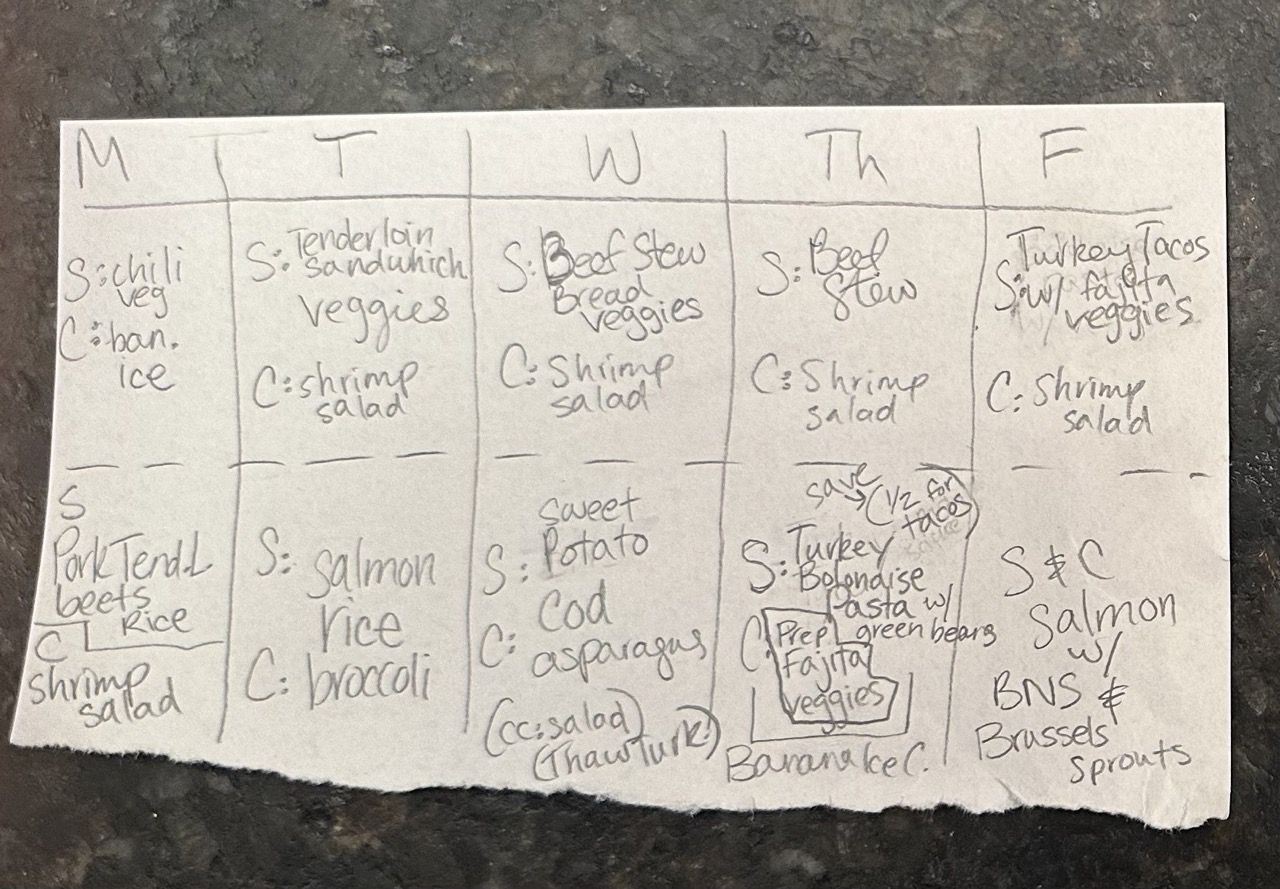 M
T
W
Th
F
S: chili
veg
C: ban.
ice
S: Tenderloin
sandwhich
veggies
C: shrimp
salad
S: Beef Stew
Bread
veggies
C: Shrimp
salad
S: Beef
Stew
C: Shrimp
salad
Turkey Tacos
S: w/ fajita
veggies
C: Shrimp
salad
S
Pork Tend.L
beets
Rice
C
shrimp
salad
S: salmon
rice
C: broccoli
sweet
S: Potato
Cod
C: asparagus
(cc: salad)
(Thaw Turk)
save
→ (1/2 for
tacos)
S: Turkey
Bolondise
Pasta w/
green beans
C: Prep
Fajita
veggies
Banana Ice C.
S & C
Salmon
w/
BNS &
Brussels
sprouts